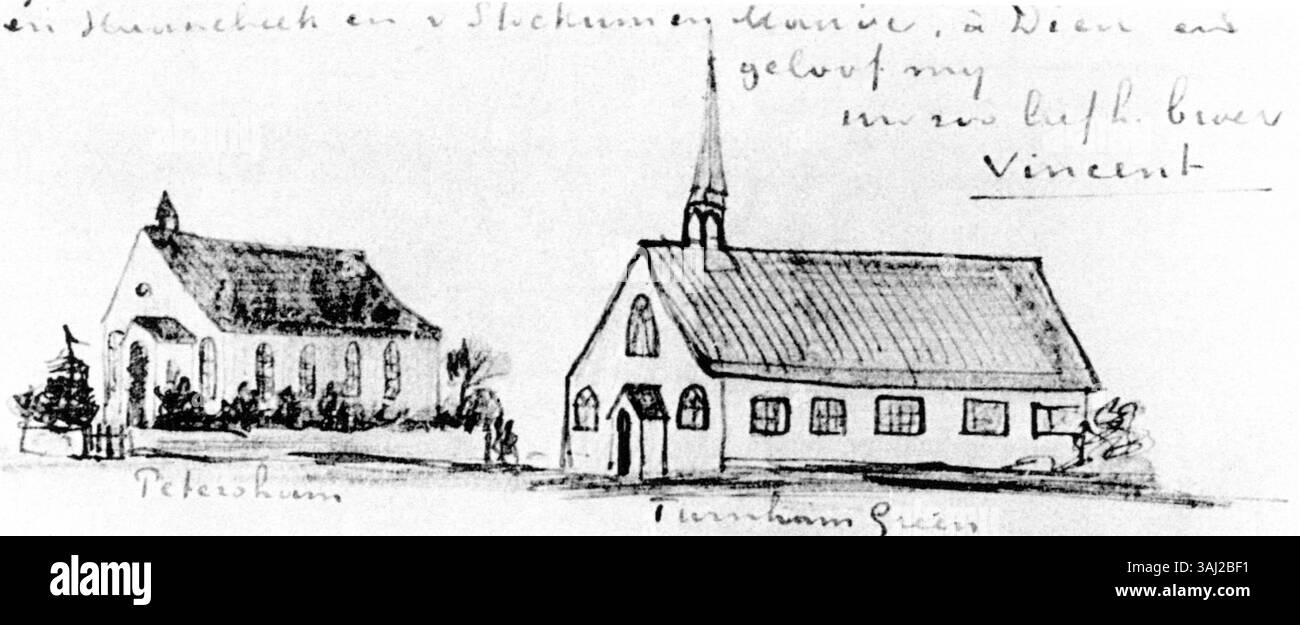 en v Stockum en Mauve, à Dieu en
geloof my
uw zoo liefh. broer
Vincent
Petersham
Turnham Green
alamy
Image ID: 3AJ2BF1
www.alamy.com